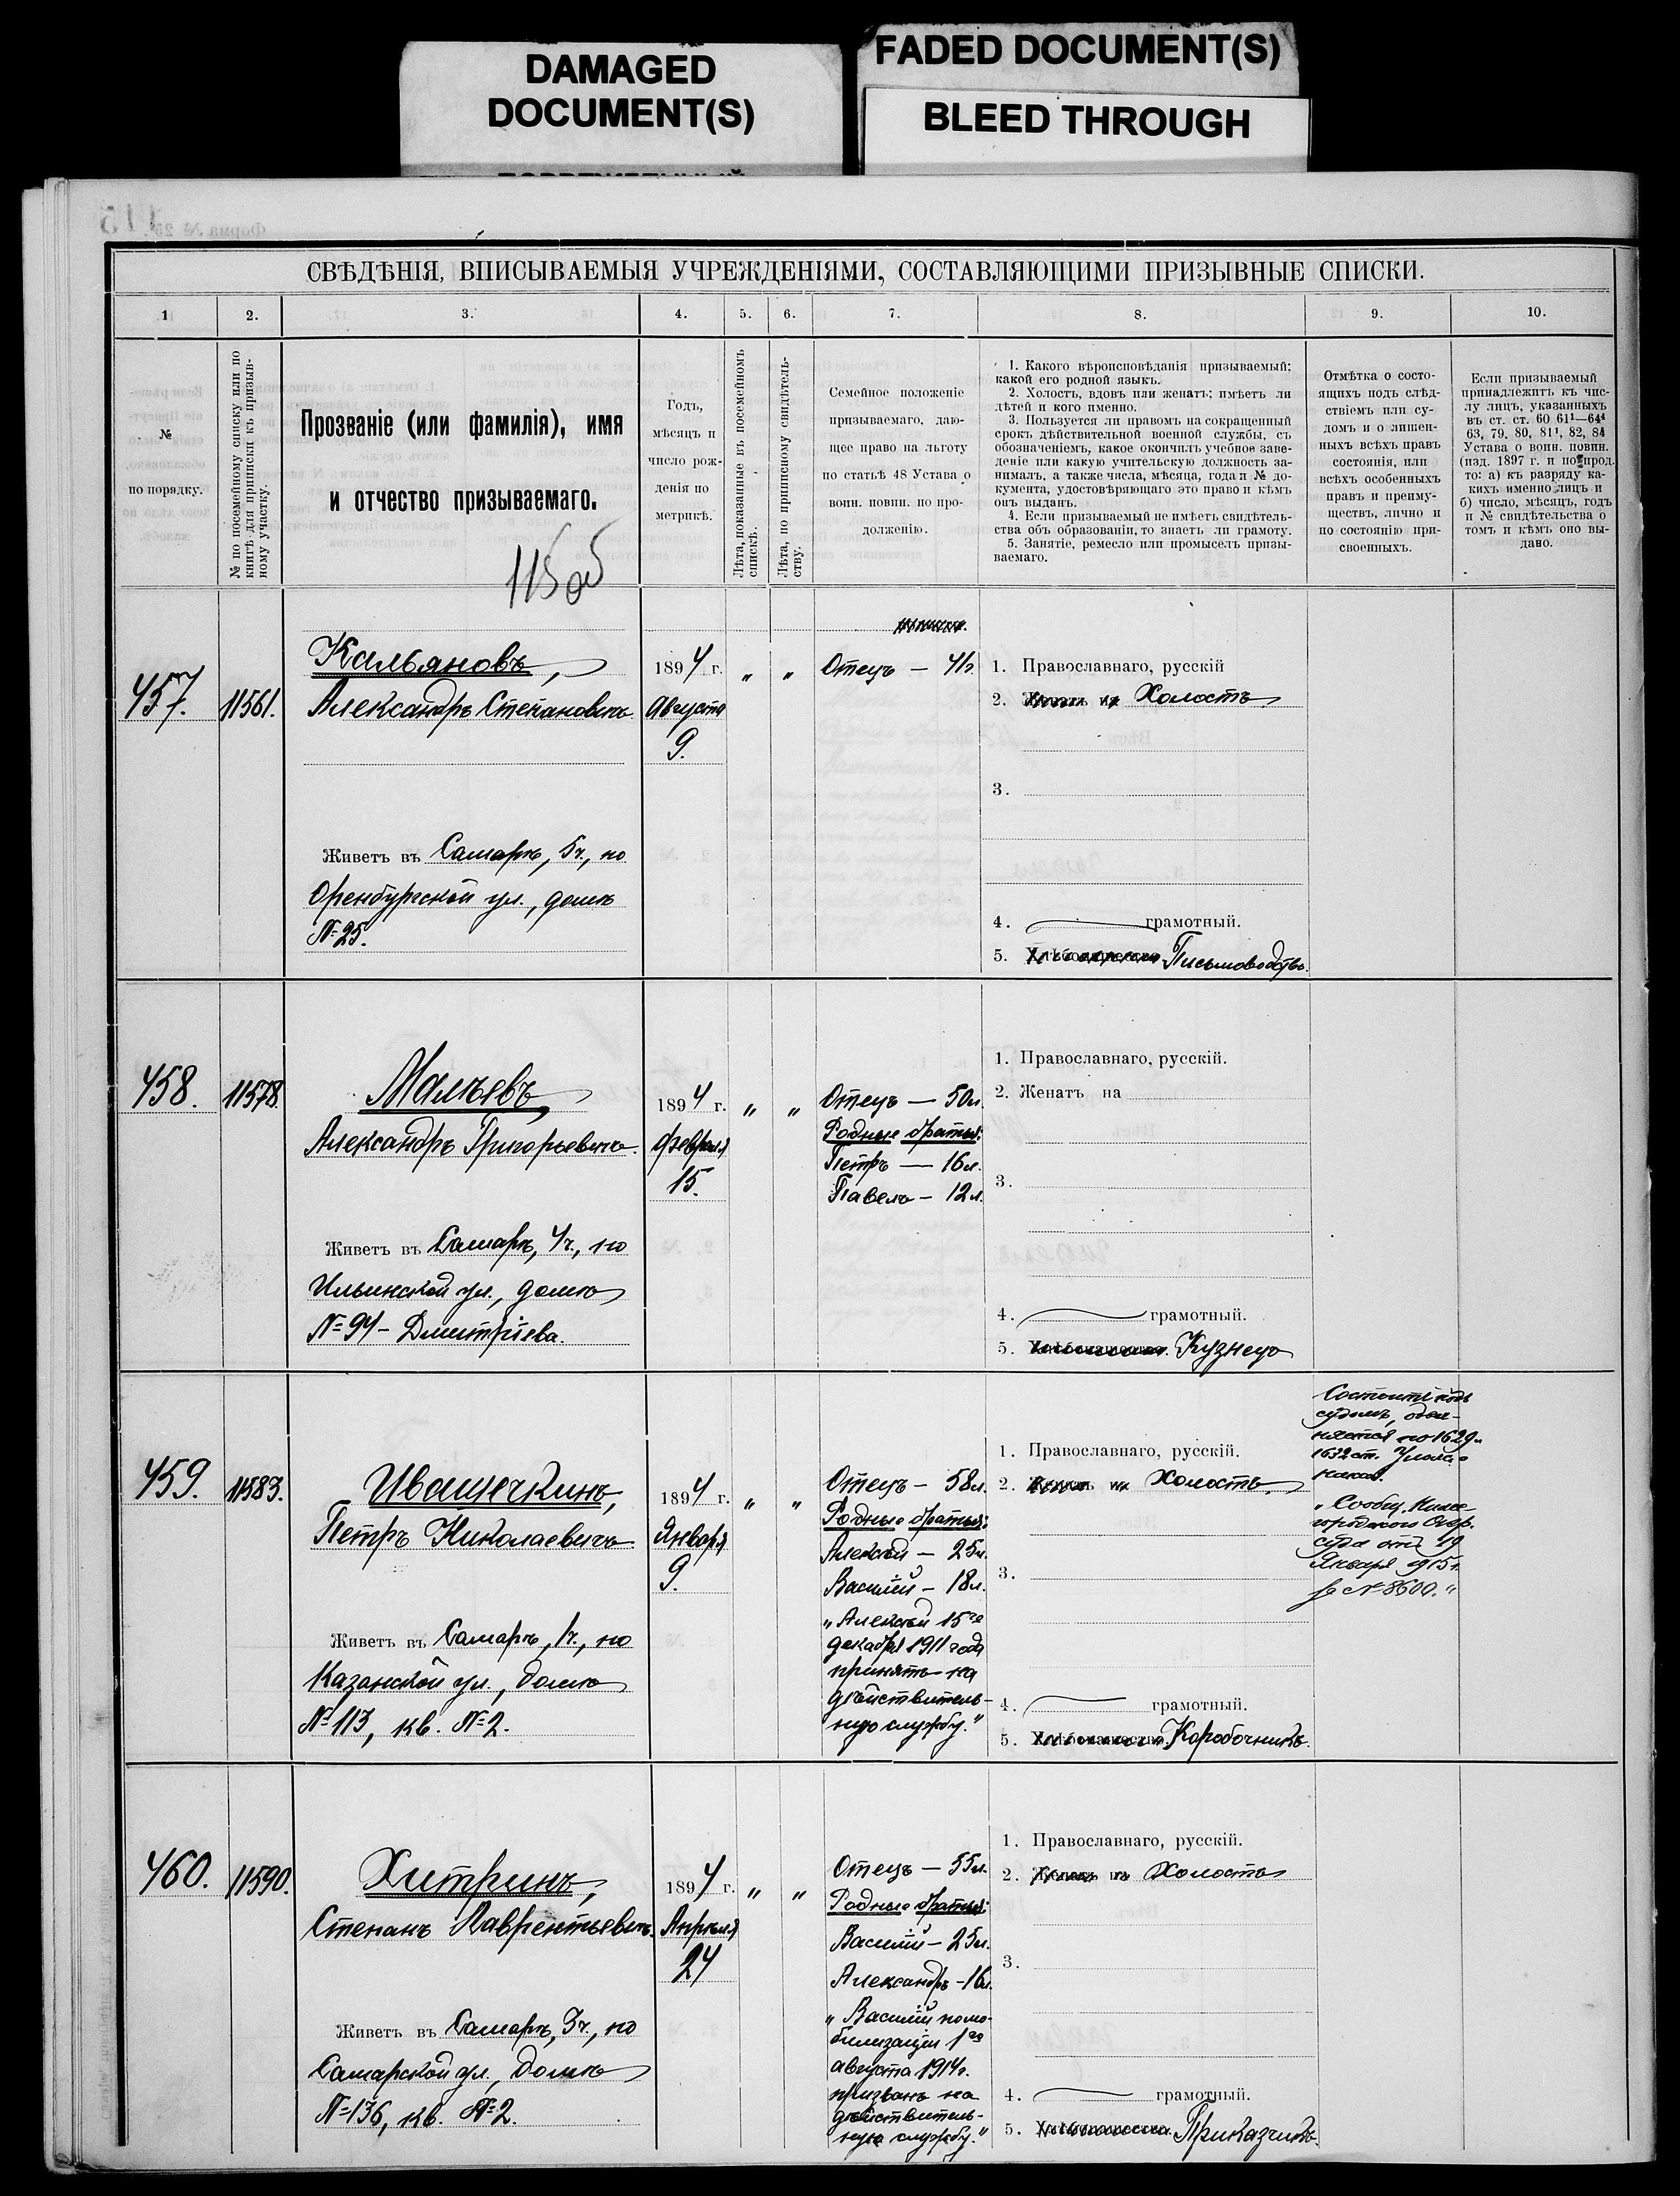 DAMAGED
DOCUMENT(S)
FADED DOCUMENT(S)
BLEED THROUGH
Форма № 25.
115
СВѢДѢНІЯ, ВПИСЫВАЕМЫЯ УЧРЕЖДЕНІЯМИ, СОСТАВЛЯЮЩИМИ ПРИЗЫВНЫЕ СПИСКИ.
1
2.
3.
4.
5.
6.
7.
8.
9.
10.
№
по порядку.
№ по посемейному списку или по
книгѣ для приписки къ призыв-
ному участку.
Прозваніе (или фамилія), имя
и отчество призываемаго.
115об
Годъ,
мѣсяцъ и
число рож-
денія по
метрикѣ.
Лѣта, показанныя въ посемейномъ
спискѣ.
Лѣта, по приписному свидѣтель-
ству.
Семейное положеніе
призываемаго, даю-
щее право на льготу
по статьѣ 48 Устава о
воин. повин. по про-
долженію.
1. Какого вѣроисповѣданія призываемый;
какой его родной языкъ.
2. Холостъ, вдовъ или женатъ; имѣетъ ли
дѣтей и кого именно.
3. Пользуется ли правомъ на сокращенный
срокъ дѣйствительной военной службы, съ
обозначеніемъ, какое окончилъ учебное заве-
деніе или какую учительскую должность за-
нималъ, а также числа, мѣсяца, года и № до-
кумента, удостовѣряющаго это право и кѣмъ
онъ выданъ.
4. Если призываемый не имѣетъ свидѣтель-
ства объ образованіи, то знаетъ ли грамоту.
5. Занятіе, ремесло или промыселъ призы-
ваемаго.
Отмѣтка о состо-
ящихъ подъ слѣд-
ствіемъ или су-
домъ и о лишен-
ныхъ всѣхъ правъ
состоянія, или
всѣхъ особенныхъ
правъ и преиму-
ществъ, лично и
по состоянію при-
своенныхъ.
Если призываемый
принадлежитъ къ чис-
лу лицъ, указанныхъ
въ ст. ст. 60 61¹—64⁴
63, 79, 80, 81¹, 82, 84
Устава о воин. повин.
(изд. 1897 г. и по прод.
то: а) къ разряду ка-
кихъ именно лицъ и
б) число, мѣсяцъ, годъ
и № свидѣтельства о
томъ и кѣмъ оно вы-
дано.
457.
11561.
Кальяновъ,
Александръ Степановичъ
Живетъ въ Самарѣ, 5ч., по
Оренбургской ул., домъ
№ 25.
1894 г.
Августа
9.
„
„
Отецъ — 41г.
1. Православнаго, русскій
2. Женатъ на Холостъ
3.
4. грамотный.
5. Хлѣбопашество. Письмоводство.
458.
11578.
Малѣевъ,
Александръ Григорьевичъ.
Живетъ въ Самарѣ, 4ч., по
Ильинской ул., домъ
№ 94 - Дмитріева.
1894 г.
февраля
15.
„
„
Отецъ — 50л.
Родные братья:
Петръ — 16л.
Павелъ — 12л.
1. Православнаго, русскій.
2. Женатъ на
3.
4. грамотный.
5. Хлѣбопашество. Кузнецъ
459.
11583.
Иващечкинъ,
Петръ Николаевичъ
Живетъ въ Самарѣ, 1ч., по
Казанской ул., домъ
№ 113, кв. № 2.
1894 г.
Января
9.
„
„
Отецъ — 58л.
Родные братья:
Алексѣй — 25л.
Василій — 18л.
„Алексѣй 15го
декабря 1911 года
принятъ на
дѣйствитель-
ную службу.“
1. Православнаго, русскій.
2. Женатъ на Холостъ.
3.
4. грамотный.
5. Хлѣбопашество. Коробочникъ.
Состоитъ подъ
судомъ, обви-
няется по 1629 и
1632 ст. Улож. о
наказ.
„Сообщ. Ниже-
городскаго Окр.
суда отъ 19
Января 1915 г.
за № 8600.“
460.
11590.
Хитринъ,
Степанъ Лаврентьевичъ.
Живетъ въ Самарѣ, 3ч., по
Самарской ул., домъ
№ 136, кв. № 2.
1894 г.
Апрѣля
24
„
„
Отецъ — 55л.
Родные братья:
Василій — 25л.
Александръ - 16л.
„Василій по мо-
билизаціи 1го
августа 1914г.
призванъ на
дѣйствитель-
ную службу.“
1. Православнаго, русскій.
2. Женатъ на Холостъ
3.
4. грамотный.
5. Хлѣбопашество. Приказчикъ.